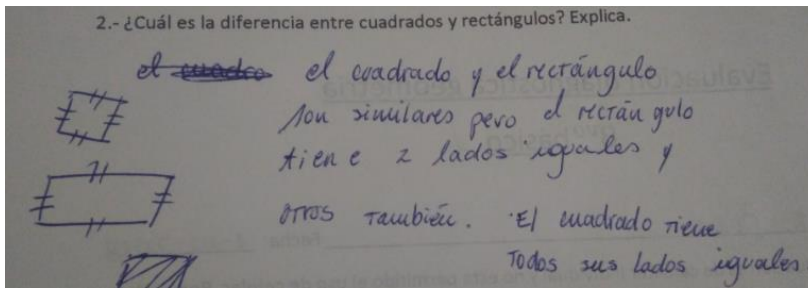 2.- ¿Cuál es la diferencia entre cuadrados y rectángulos? Explica.
el cuadro el cuadrado y el rectángulo
son similares pero el rectángulo
tiene 2 lados iguales y
otros también. El cuadrado tiene
Todos sus lados iguales